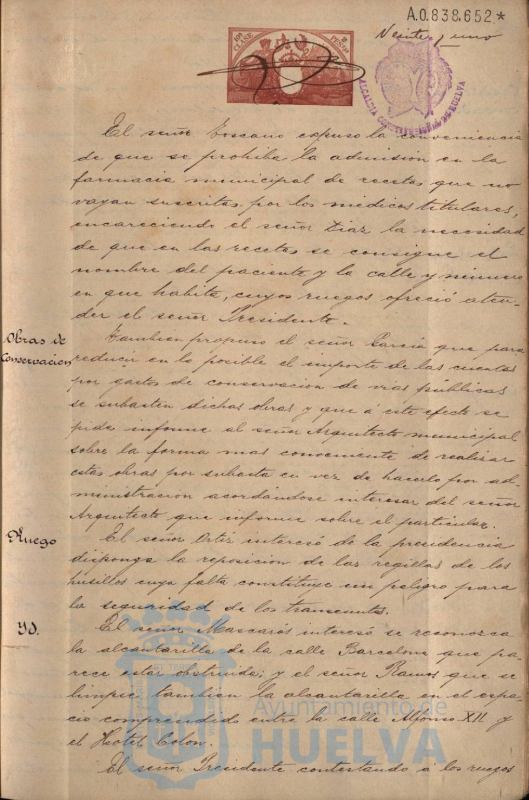 A.0.838.652*
Veinte y uno
CLASE
ALCALDIA CONSTITUCIONAL DE HUELVA
El señor Toscano expuso la conveniencia
de que se prohiba la admision en la
farmacia municipal de recetas que no
vayan suscritas por los médicos titulares,
encareciendo el señor Diaz la necesidad
de que en las recetas se consigne el
nombre del paciente y la calle y número
en que habita, cuyos ruegos ofreció aten-
der el señor Presidente.
Obras de
Conservacion
Tambien propuso el señor Garcia que para
reducir en lo posible el importe de las cuentas
por gastos de conservacion de vias públicas
se subasten dichas obras y que á este efecto se
pida informe al señor Arquitecto municipal
sobre la forma mas conveniente de realizar
estas obras por subasta en vez de hacerlo por ad-
ministración acordándose interesar del señor
Arquitecto que informe sobre el particular.
Ruego
El señor Ortiz interesó de la presidencia
disponga la reposicion de las regillas de los
husillos cuya falta constituye un peligro para
la seguridad de los transeuntes.
Yd.
El señor Mascarós interesó se reconozca
la alcantarilla de la calle Barcelona que pa-
rece estar obstruida; y el señor Ramos que se
limpie tambien la alcantarilla en el espa-
cio comprendido entre la calle Alfonso XII y
el Hotel Colon.
El señor Presidente contestando á los ruegos
Ayuntamiento de
HUELVA